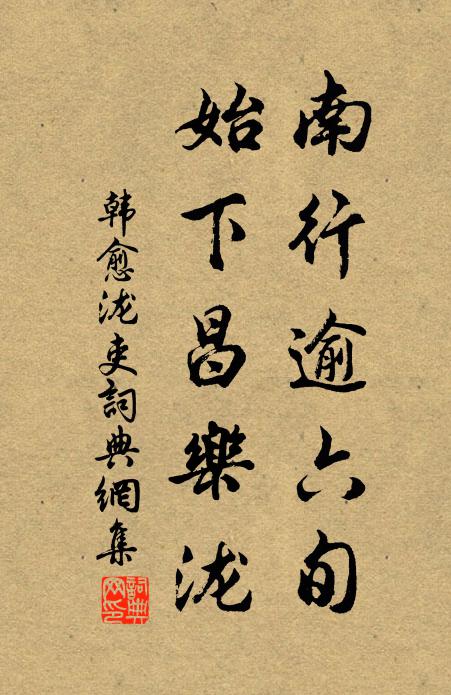 南行逾六旬
始下昌樂泷
韩愈泷吏詞典網集
詞典网印